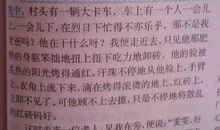 中,村头有一辆大卡车,车上有一个人一会儿
七,一会儿下,在烈日下忙得不亦乐乎,那不是我
老爸吗?他在干什么呀?我便走近去,只见他那肥
的身躯笨拙地扭上扭下吃力地卸砖,他的脸被
热的阳光烤得通红,汗珠不停地从他脸上、手臂
、衣角上流下来,滴在烤得滚烫的地上、红砖上,
立即不见了,可他顾不上擦,只是不停地将散乱
的红砖码好。
这时走来一位老人,见我在旁,便说:"雯雯,好